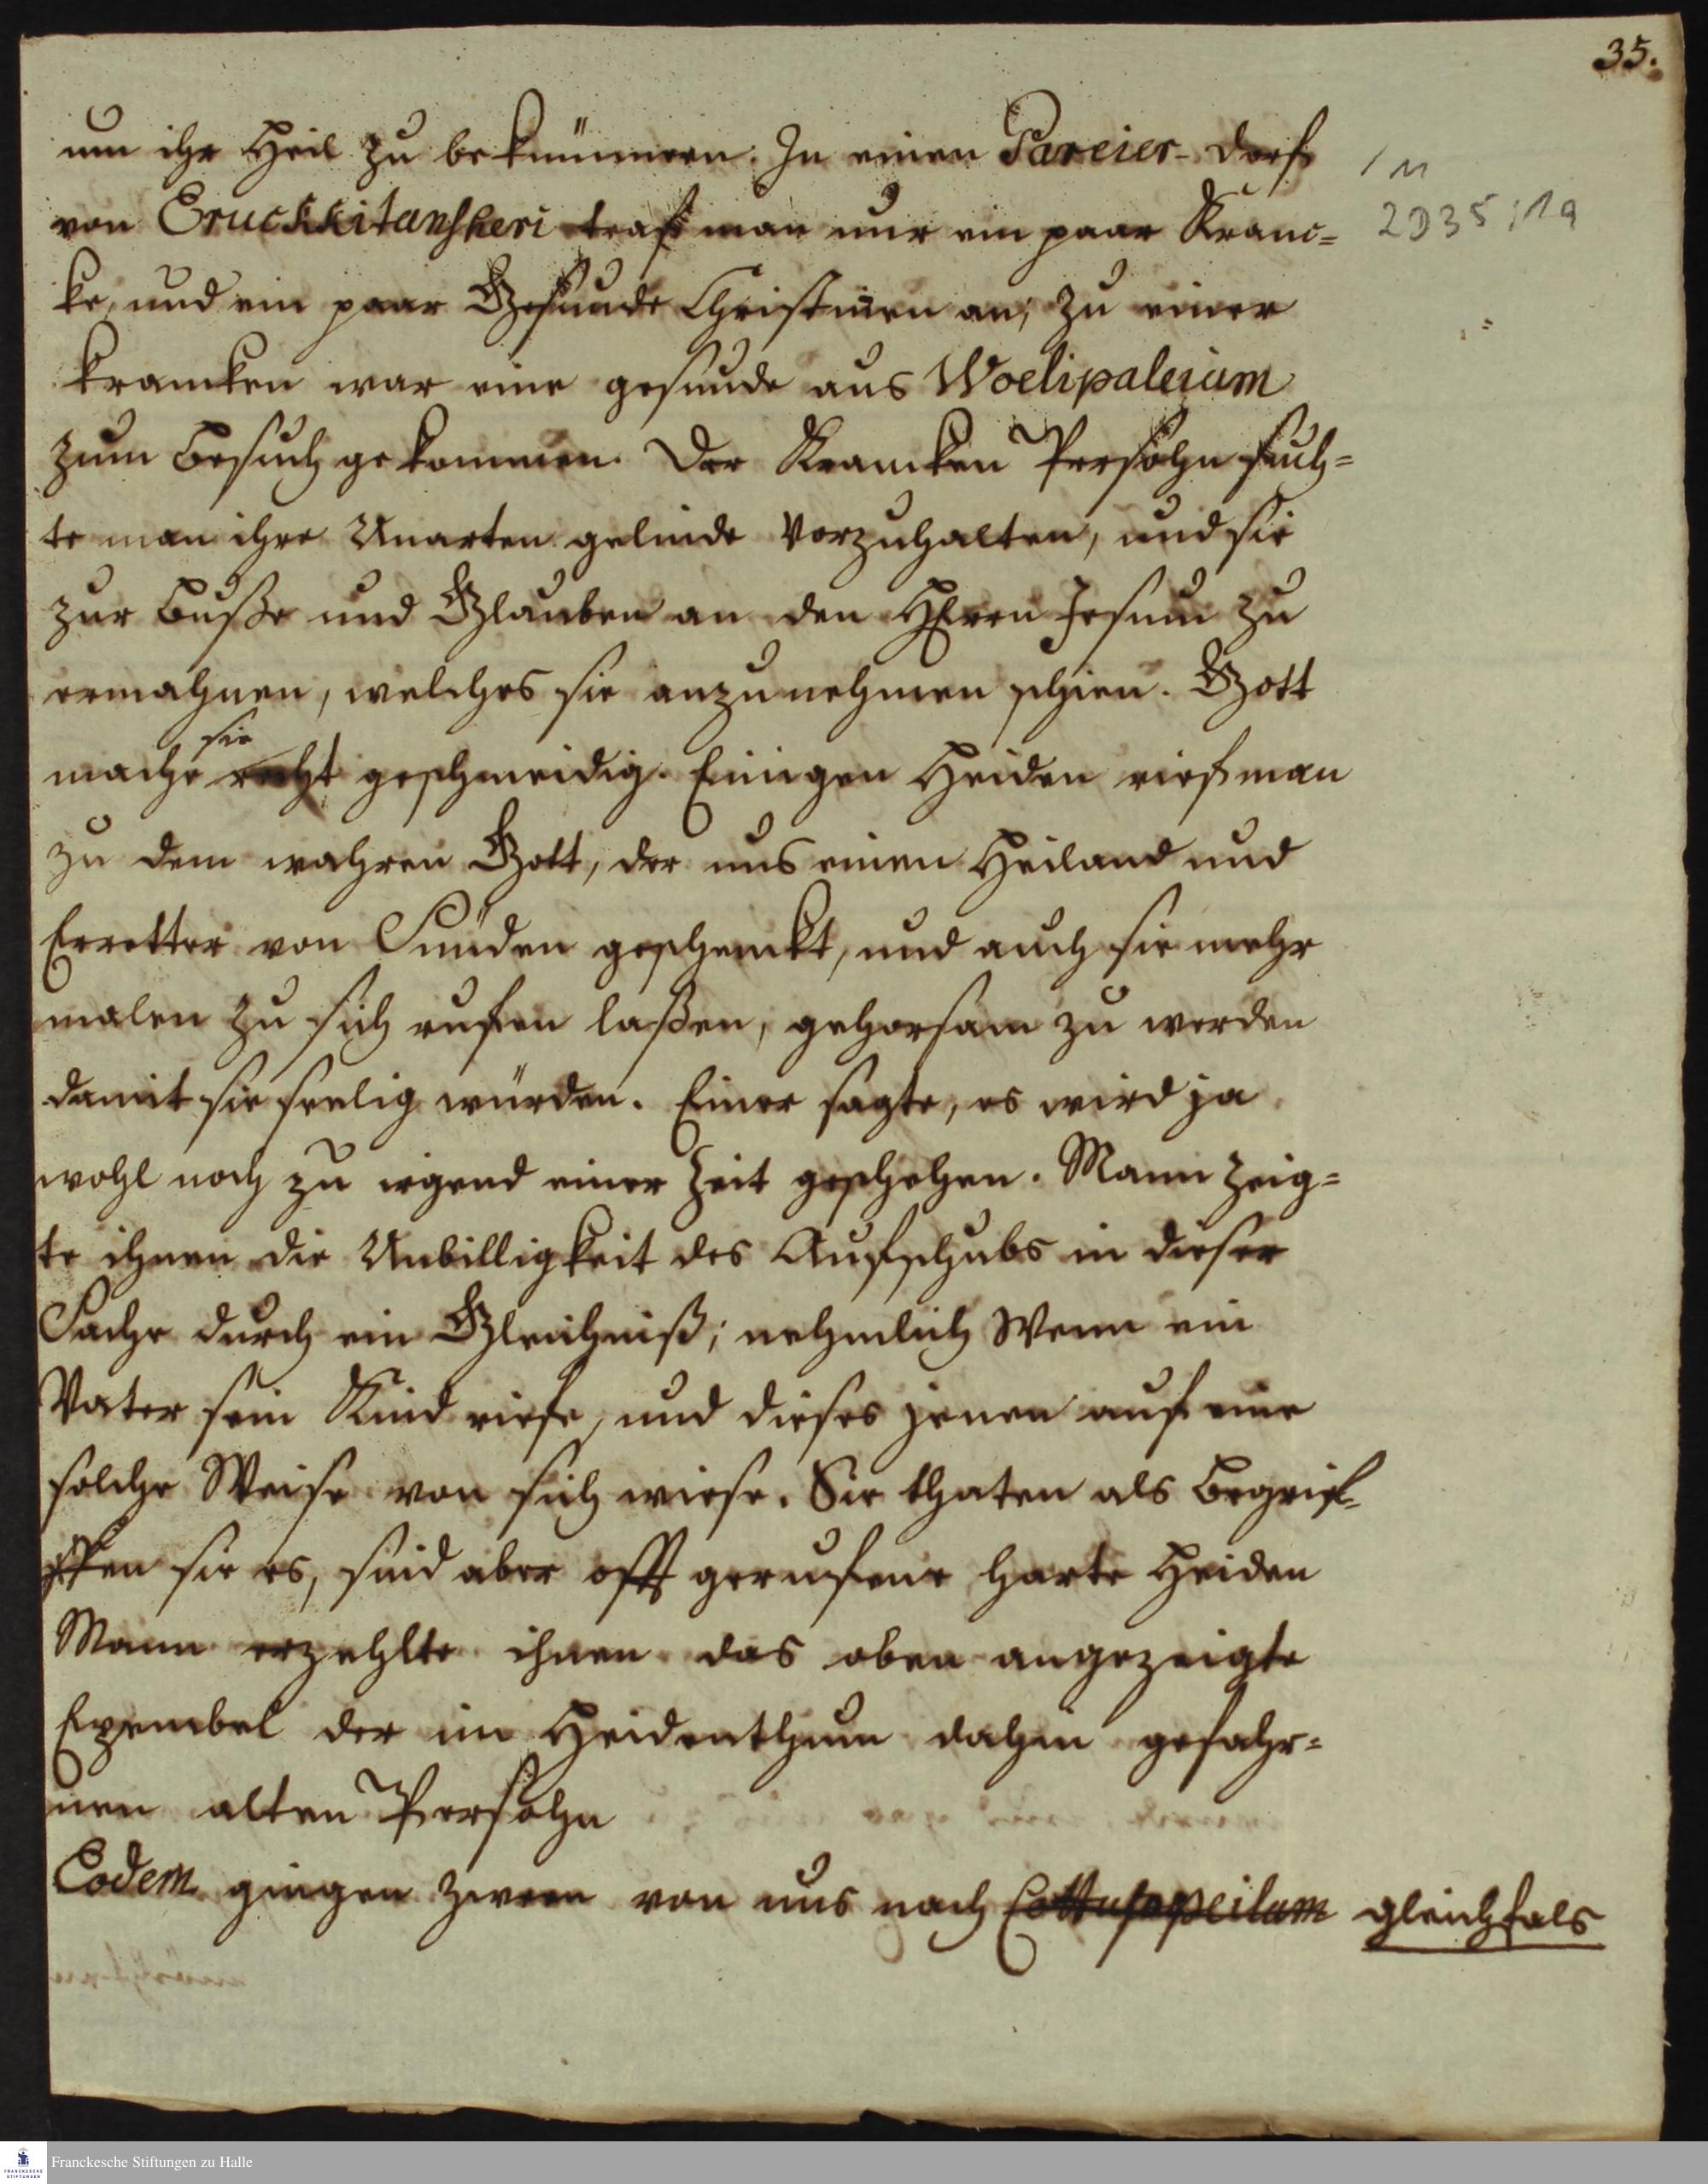 35.
um ihr Heil zu bekümmern. In einen Pareier-dorf
von Eruckkitanscheri traf man nur ein paar Kranc=
ke, und ein paar Gesunde Christinen an; zu einer
krancken war eine gesunde aus Woelipaleiam
zum Besuch gekommen. Der Krancken Persohn such=
te man ihre Unarten gelinde vorzuhalten, und sie
zur Buße und Glauben an den HErrn Jesum zu
ermahnen, welches sie anzunehmen schien. Gott
sie
mache recht geschmeidig. Einigen Heiden rief man
zu dem wahren Gott, der uns einen Heiland und
Erretter von Sünden geschenckt, und auch sie mehr
malen zu sich rufen laßen, gehorsam zu werden
damit sie seelig würden. Einer sagte, es wird ja
wohl noch zu irgend einer Zeit geschehen. Mann zeig=
te ihnen die Unbilligkeit des Aufschubs in dieser
Sache durch ein Gleichniß; nehmlich Wenn ein
Vater sein Kind riefe, und dieses jenen auf eine
solche Weise von sich wiese. Sie thaten als begrif=
fen sie es, sind aber offt gerufene harte Heiden
Mann erzehlte ihnen das oben angezeigte
Exembel der im Heidenthum dahin gefahr=
nen alten Persohn
Eodem gingen zween von uns nach gleichfals
1 11
2D35:19
Franckesche Stiftungen zu Halle
FRANCKESCHE
STIFTUNGEN